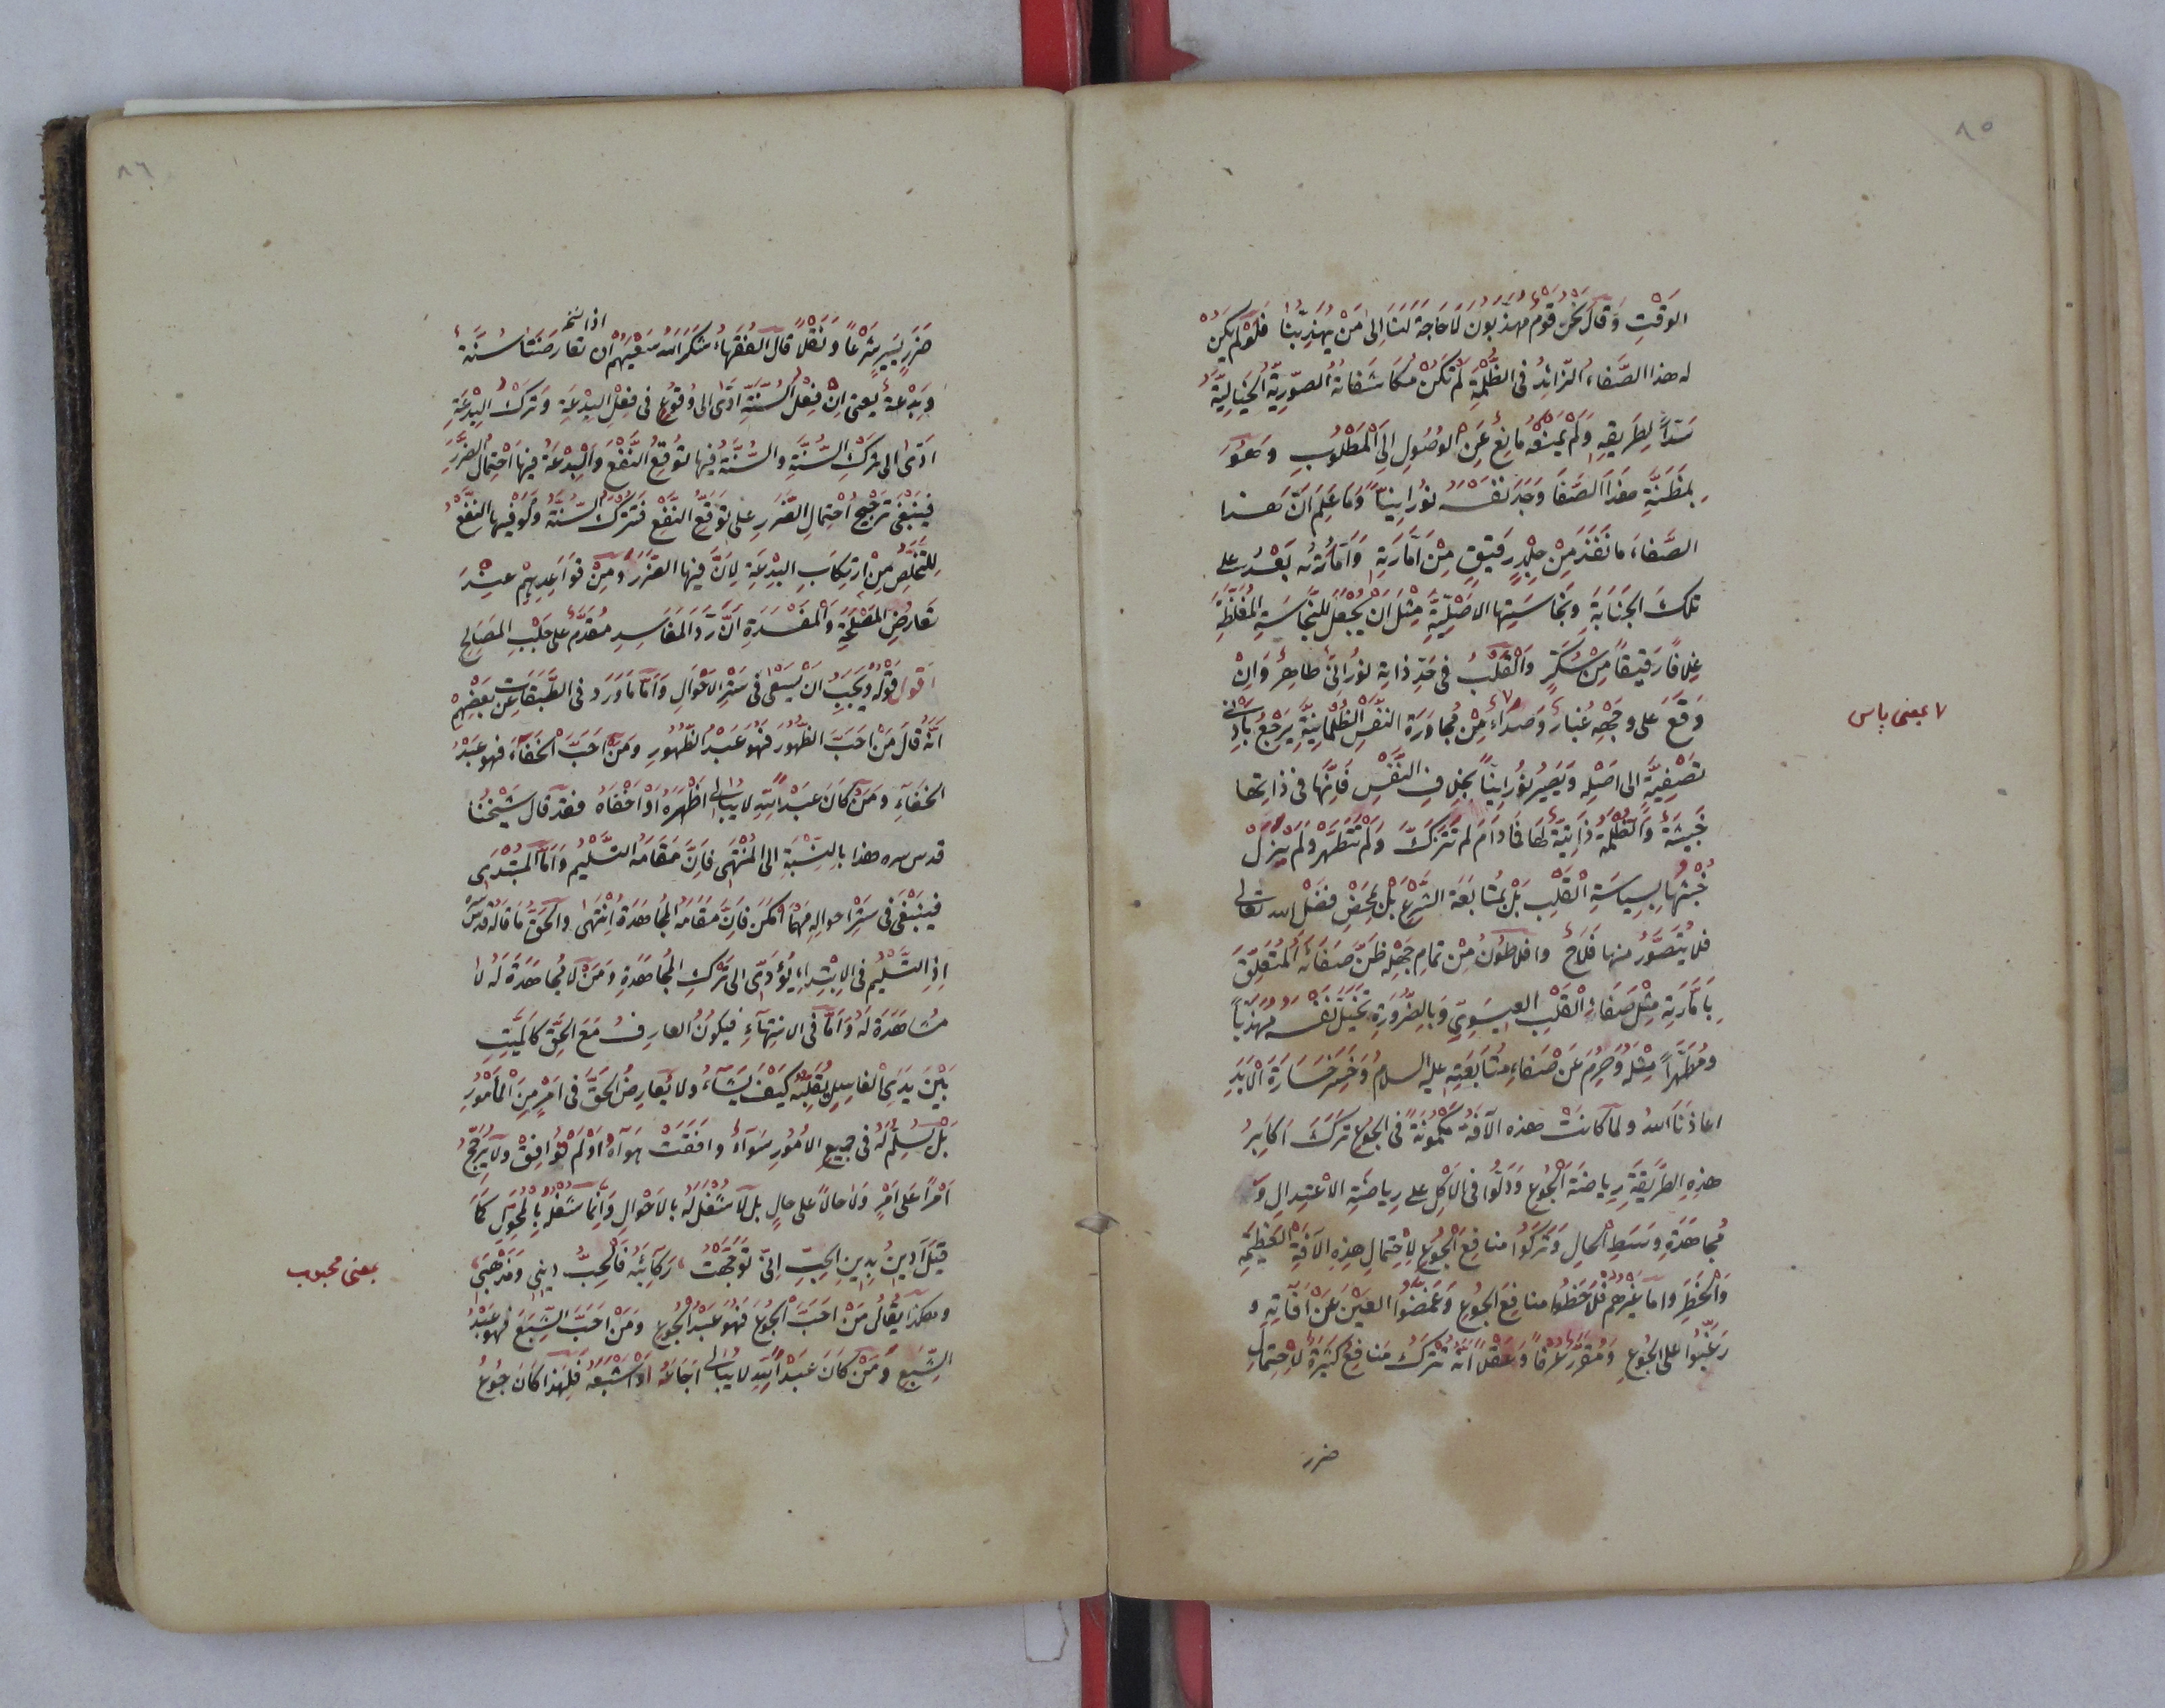 ٨٥
الوَقْتِ وَقَالَ نَحْنُ قَوْمٌ مُهَذَّبُونَ لَا حَاجَةَ لَنَا إِلَى مَنْ يُهَذِّبُنَا فَلَوْ لَمْ يَكُنْ
له هذا الصَّفَاءُ الزَّائِدُ فى الظُّلْمَةِ لَمْ تَكُنْ مُكَاشَفَاتُهُ الصُّوَرِيَّةُ الْخَيَالِيَّةُ
سَدّاً لِطَرِيقِهِ وَلَمْ يَمْنَعْهُ مَانِعٌ عَنِ الْوُصُولِ إِلَى الْمَطْلُوبِ وَهُوَ
بِمَظَنَّةِ هذَا الصَّفَا وَجَدَ نَفْسَهُ نُورَانِيّاً وَمَا عَلِمَ اَنَّ هذا
الصَّفَاءَ مَا نَفَذَ مِنْ جِلْدٍ رَقِيقٍ مِنْ اَمَّارَتِهِ وَاَمَّارَتُهُ بَعْدُ على
تلكَ الْجَنَابَةِ وَنَجَاسَتِهَا الْاَصْلِيَّةِ مِثْلَ اَنْ يُجْعَلَ لِلنَّجَاسَةِ الْمُغَلَّظَةِ
غِلَافاً رَقِيقاً مِنْ سُكَّرٍ وَالْقَلْبُ فى حَدِّ ذَاتِهِ نُورَانِىٌّ طَاهِرٌ وَاِنْ
وَقَعَ على وَجْهِهِ غُبَارٌ وَصَدَاءٌ مِنْ مُجَاوَرَةِ النَّفْسِ الظُّلْمَانِيَّةِ يَرْجِعُ بِاَدْنىٰ
٧ بمعنى پاس
تَصْفِيَةٍ الى اَصْلِهِ وَيَصِيرُ نُورَانِيّاً بِخِلَافِ النَّفْسِ فَاِنَّهَا فى ذَاتِهَا
خَبِيثَةٌ وَالظُّلْمَةُ ذَاتِيَّةٌ لَهَا فَمَادَامَ لَمْ تَتَزَكَّ وَلَمْ تَتَطَهَّرْ وَلَمْ يَزُلْ
خُبْثُهَا بِسِيَاسَةِ الْقَلْبِ بَلْ بِمُتَابَعَةِ الشَّرْعِ بَلْ بِمَحْضِ فَضْلِ الله تَعَالى
فلا يُتَصَوَّرُ منها فَلَاحٌ وافلاطونُ مِنْ تمامِ جَهْلِهِ ظَنَّ صَفَائَهُ الْمُتَعَلِّقَ
بِاَمَّارَتِهِ مِثْلَ صَفَاءِ الْقَلْبِ الْعِيسَوِىِّ وَبِالضَّرُورَةِ تَخَيَّلَ نَفْسَهُ مُهَذَّباً
وَمُطَهَّراً مِثْلَهُ وَحُرِمَ عَنْ صَفَاءِ مُتَابَعَتِهِ عليه السلامُ وَخَسِرَ خَسَارَةَ الْاَبَدِ
اعاذنَا اللهُ ولما كَانَتْ هذه الْآفَةُ مَكْمُونَةً فى الجوعِ تَرَكَ اكابِرُ
هذِهِ الطَّرِيقَةِ رِيَاضَةَ الْجُوعِ وَدَلُّوا فى الاكلِ على رِيَاضَةِ الْاِعْتِدَالِ وَ
مُجَاهَدَةِ وَسَطِ الحالِ وَتَرَكُوا منافِعَ الْجُوعِ لِاِحْتِمَالِ هذِهِ الْآفَةِ الْعَظِيمَةِ
وَالْخَطَرِ وَاما غَيْرُهُمْ فَلَاحَظُوا منافِعَ الجوعِ وَغَمَضُوا العَيْنَ عَنْ آفَاتِهِ وَ
رَغَّبُوا على الجُوعِ وَمُقَرَّرٌ عُرْفاً وَعَقْلاً اَنَّهُ تُتْرَكُ مَنَافِعُ كَثِيرَةٌ لِاِحْتِمَالِ
ضرر
٨٦
اذا نسخه
ضَرَرٍ يَسِيرٍ شَرْعاً وَنَقْلاً قال الفُقَهَاءُ شَكَرَ الله سَعْيَهُمْ ان تَعَارَضَتَا سُنَّةٌ
وَبِدْعَةٌ يعنى اِنْ فِعْلُ السُّنَّةِ اَدّٰى الى وُقُوعٍ فى فِعْلِ البِدْعَةِ وَتَرْكُ الْبِدْعَةِ
اَدّٰى الى تَرْكِ السُّنَّةِ وَالسُّنَّةُ فِيهَا تَوَقُّعُ النَّفْعِ وَالْبِدْعَةُ فيها احْتِمَالُ الضَّرَرِ
فَيَنْبَغِى تَرْجِيحُ احْتِمَالِ الضَّرَرِ على تَوَقُّعِ النَّفْعِ فَتُتْرَكُ السُّنَّةُ وَلَوْ فِيهَا النَّفْعُ
لِلتَّخَلُّصِ مِنْ اِرْتِكَابِ البِدْعَةِ لِاَنَّ فيها الضَّرَرَ وَمِنْ قَوَاعِدِهِمْ عِنْدَ
تَعَارُضِ الْمَصْلَحَةِ وَالْمَفْسَدَةِ اَنَّ رَدَّ الْمَفَاسِدِ مُقَدَّمٌ على جَلْبِ المَصَالِحِ
اقول قَوْلُهُ وَيَجِبُ اَنْ يَسْعٰى فى سَتْرِ الْاَحْوَالِ وَاَمَّا مَا وَرَدَ فى الطَّبَقَاتِ عَنْ بَعْضِهِمْ
اَنَّهُ قَالَ مَنْ اَحَبَّ الظُّهُورَ فَهُوَ عَبْدُ الظُّهُورِ وَمَنْ اَحَبَّ الْخَفَاءَ فهو عَبْدُ
الخفَاءِ وَمَنْ كَانَ عَبْدَ اللهِ لا يُبَالى اَظْهَرَهُ اَوْ اَخْفَاهُ فقد قال شَيْخُنَا
قدس سره هذا بِالنِّسْبَةِ الى الْمُنْتَهِى فَاِنَّ مَقَامَهُ التَّسْلِيمُ وَاَمَّا الْمُبْتَدِى
فَيَنْبَغِى فى سَتْرِ احوالِهِ مَهْمَا اَمْكَنَ فَاِنَّ مَقَامَهُ الْمُجَاهَدَةُ اِنْتَهٰى والحَقُّ مَا قَالَهُ قُدِّسَ سره
اِذِ التَّسْلِيمُ فى الْاِبْتِدَاءِ يُؤَدِّى الى تَرْكِ الْمُجَاهَدَةِ وَمَنْ لَا مُجَاهَدَةَ لَهُ لَا
مُشَاهَدَةَ لَهُ وَاَمَّا فى الانتِهَاءِ فَيَكُونُ العارِفُ مَعَ الْحَقِّ كَالْمَيِّتِ
بَيْنَ يَدَىِ الْغَاسِلِ يُقَلِّبُهُ كَيْفَ يَشَاءُ ولا يُعَارِضُ الْحَقَّ فى اَمْرٍ مِنَ الْاُمُورِ
بَلْ يُسَلِّمُ لَهُ فى جميعِ الْاُمُورِ سَوَاءٌ وَافَقَتْ هَوَاهُ اَوْ لَمْ تُوَافِقْ وَلَا يُرَجِّحُ
اَمْراً عَلى اَمْرٍ وَلَا حَالاً على حالٍ بل لَا شُغْلَ لَهُ بِالْاَحْوَالِ وَاِنَّمَا شُغْلُهُ بِالْمُحَوِّلِ كَمَا
قِيلَ اَدِينُ بِدِينِ الْحِبِّ اِنّى تَوَجَّهَتْ ، رَكَائِبُهُ فَالْحِبُّ دِينِى وَمَذْهَبِى ،
بمعنى محبوب
وهكذا يُقَالُ مَنْ اَحَبَّ الْجُوعَ فَهُوَ عَبْدُ الْجُوعِ وَمَنْ اَحَبَّ الشِّبَعَ فهو عَبْدُ
الشِّبَعِ وَمَنْ كَانَ عَبْدَ اللهِ لَا يُبَالى اَجَاعَهُ اَوْ اَشْبَعَهُ فَلِهَذَا كَانَ جُوعُ